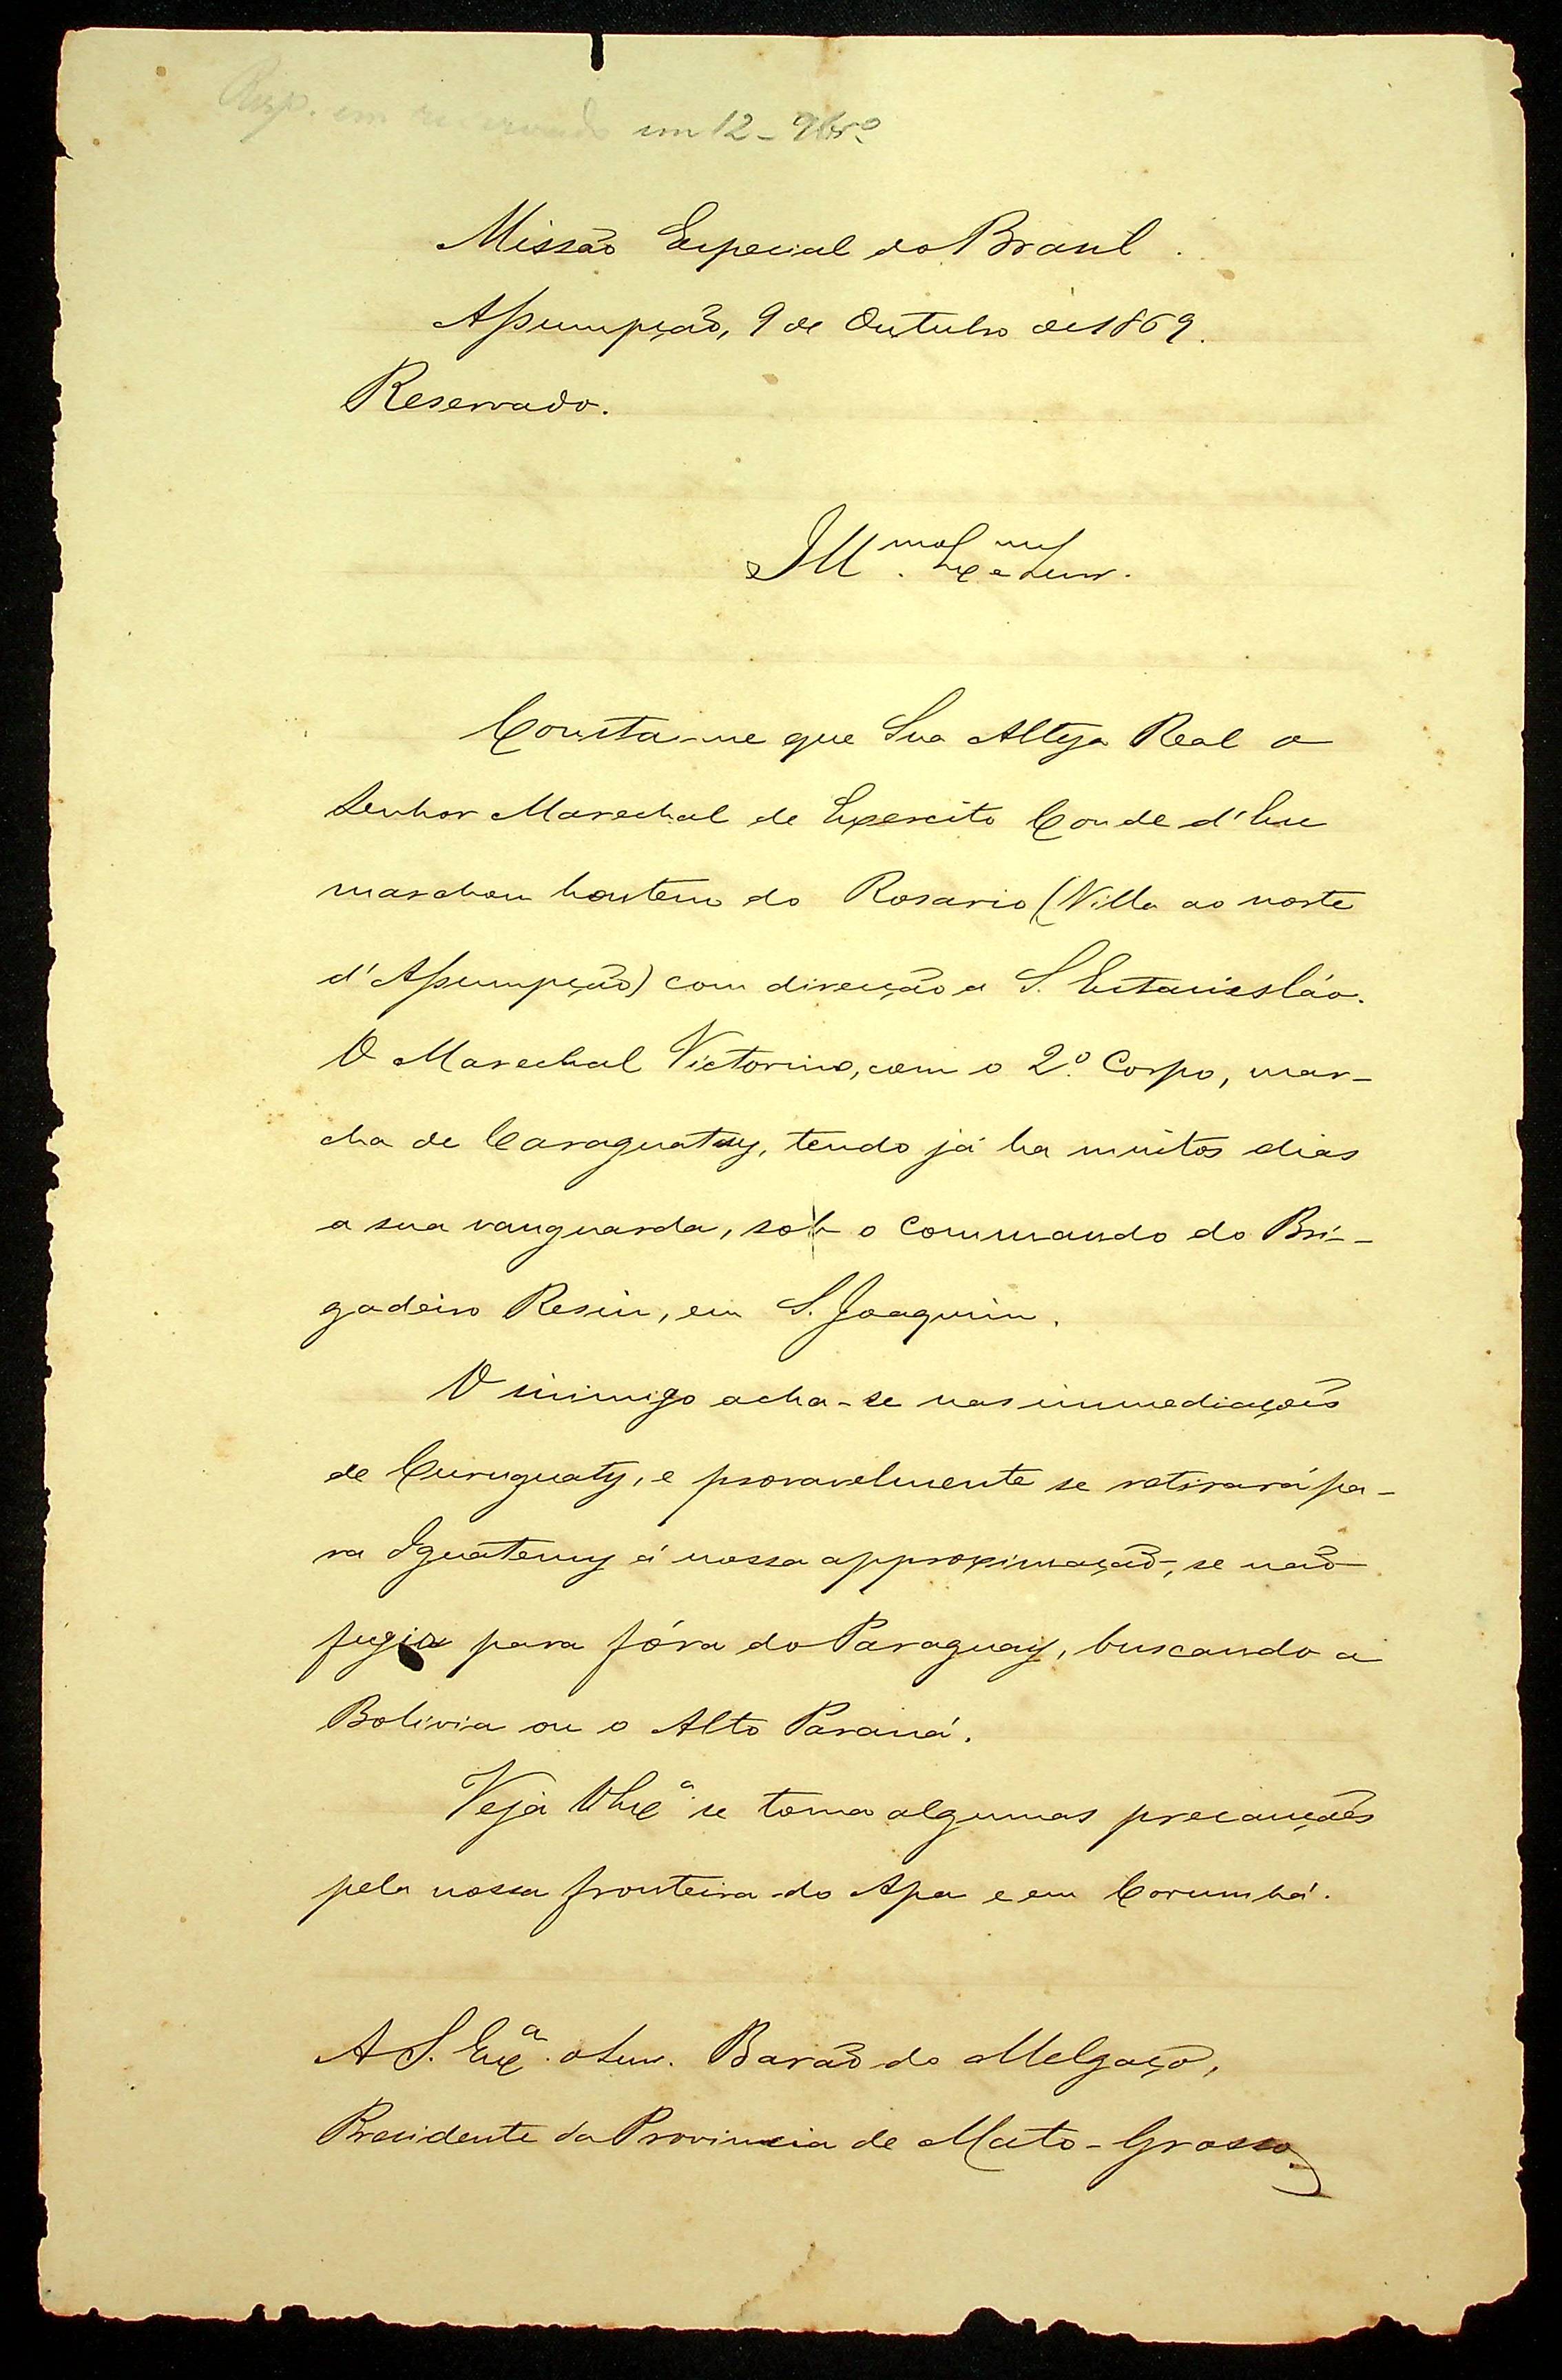 Resp. em reservado em 12-9bro
Missão Especial do Brasil.
Assumpção, 9 de Outubro de 1869.
Reservado.
Illmo. e Exmo. Senr.
Consta-me que Sua Alteza Real o
Senhor Marechal de Exercito Conde d'Eu
marchou hontem do Rosario (Villa ao norte
d'Assumpção) com direcção a S. Estanisláo.
O Marechal Victorino, com o 2º Corpo, mar-
cha de Caraguatay, tendo já ha muitos dias
a sua vanguarda, sob o commando do Bri-
gadeiro Resin, em S. Joaquim.
O inimigo acha-se nas immediações
de Curuguaty, e provavelmente se retirará pa-
ra Iguatemy á nossa approximação, se não
fugir para fóra do Paraguay, buscando a
Bolivia ou o Alto Paraná.
Veja VExª se toma algumas precauções
pela nossa fronteira do Apa e em Corumbá.
A S. Exª. o Senr. Barão de Melgaço,
Presidente da Provincia de Mato-Grosso